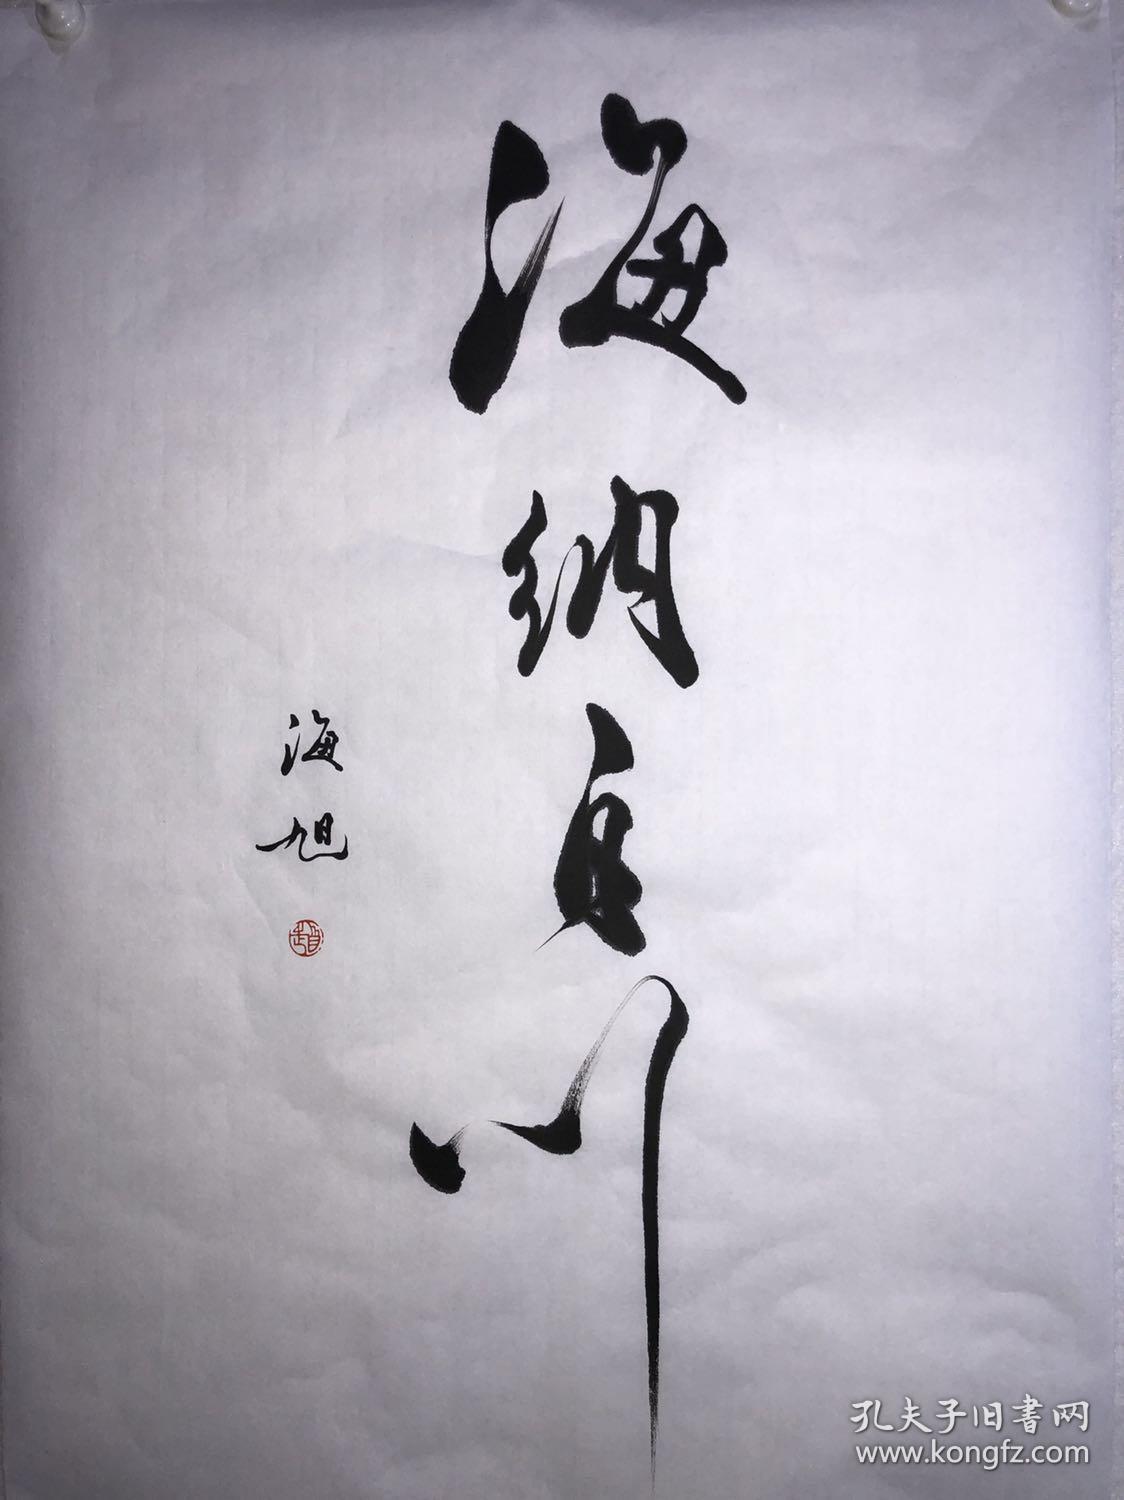 海纳百川
海旭
孔夫子旧书网
www.kongfz.com